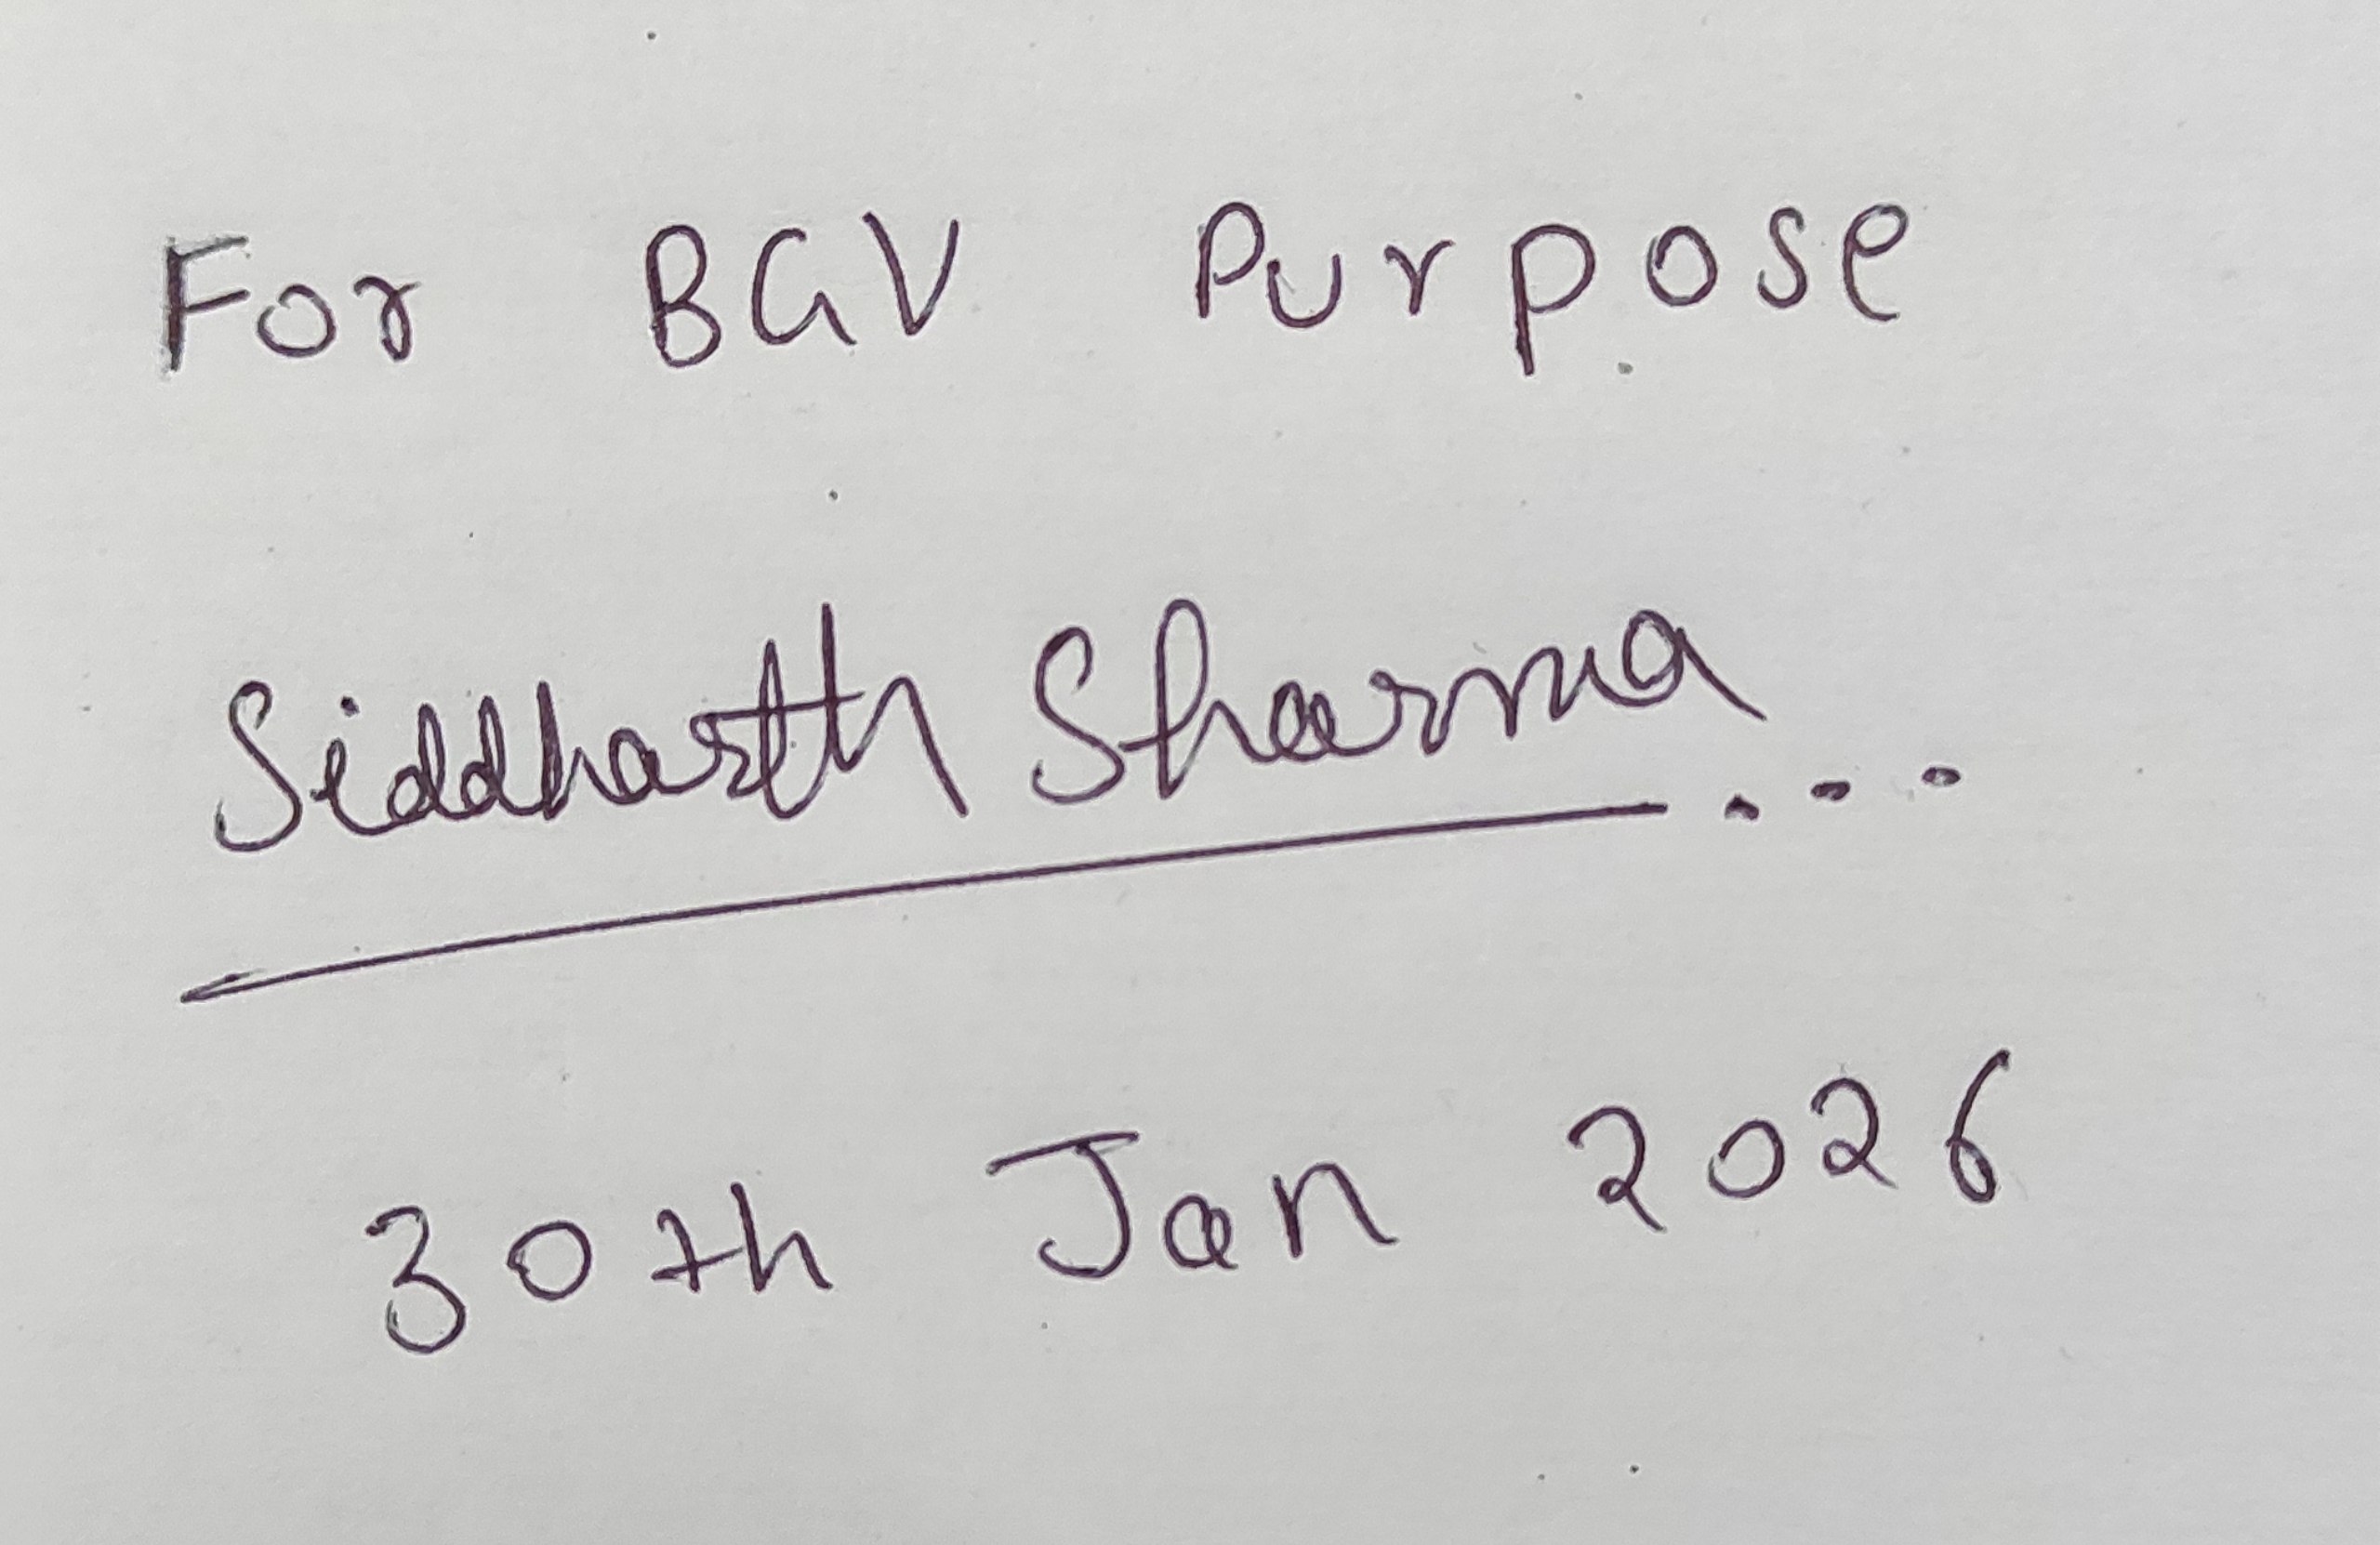 For BGV Purpose
Siddharth Sharma...
30th Jan 2026